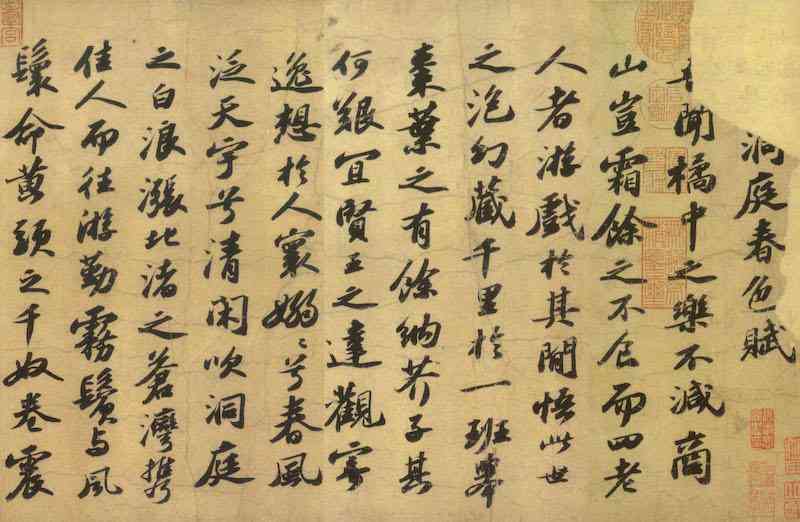 洞庭春色賦
吾聞橘中之樂不減商
山豈霜餘之不食而四老
人者游戲於其間悟此世
之泡幻藏千里於一班舉
棗葉之有餘納芥子其
何艱宜賢王之達觀寄
逸想於人寰嫋〻兮春風
泛天宇兮清閑吹洞庭
之白浪漲北渚之蒼灣携
佳人而往游勤霧鬢与風
鬟命黃頭之千奴卷震